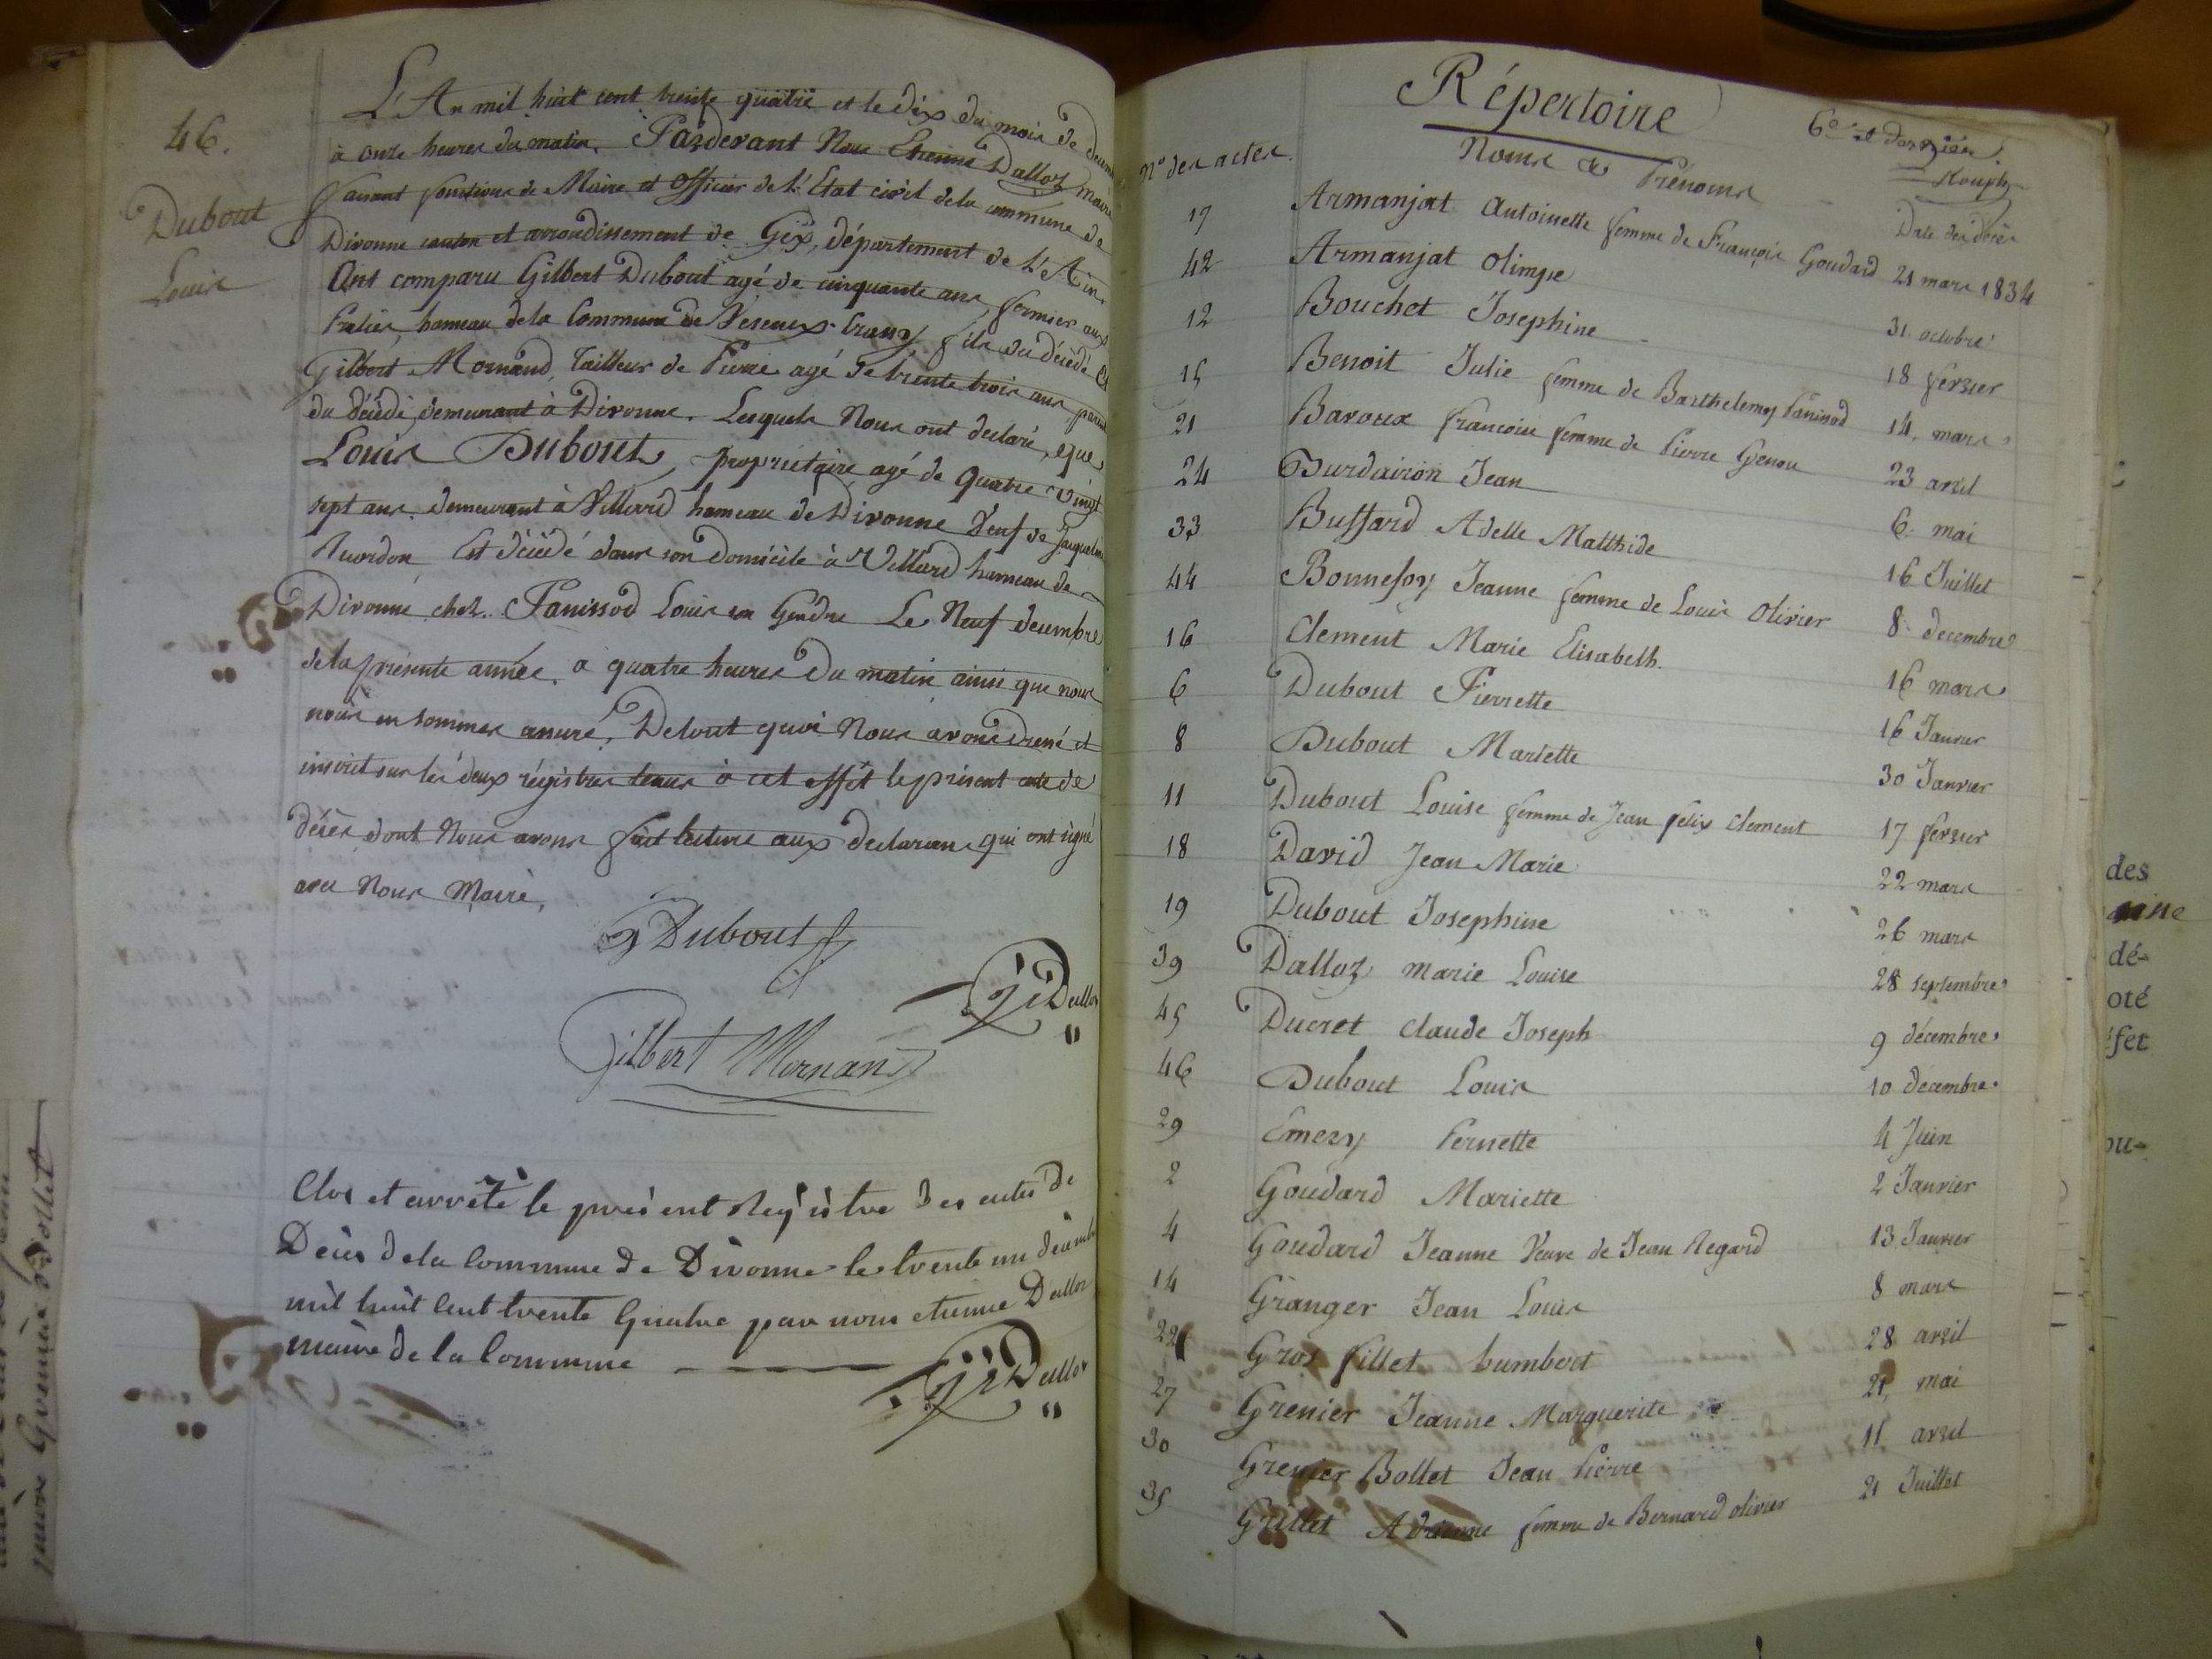 46.
Dubout
Louis
L'An mil huit cent trente quatre et le dix du mois de
à onze heures du matin. Pardevant Nous Etienne Dalloz maire
faisant fonctions de Maire et officier de l'Etat civil dela commune de
Divonne canton et arrondissement de Gex, département de l'Ain.
Ont comparu Gilbert Dubout agé de cinquante ans, fermier aux
hameau dela Commune de fils du décédé Et
Gilbert Mornand, tailleur de Pierre agé de trente trois ans
du décédé, demeurant à Divonne. Lesquels Nous ont declaré, que
Louis Dubout, propriétaire agé de quatre vingt
sept ans. demeurant à Villard hameau de Divonne Veuf de
Est décédé dans son domicile à Villard hameau de
Divonne chez Panissod Louis son Gendre Le Neuf decembre
dela présente année. a quatre heures du matin ainsi que nous
nous en sommes assuré. Detout quoi Nous avons dressé et
inscrit sur les deux régistres tenus à cet effet le présent acte de
décès, dont Nous avons fait lecture aux declarans qui ont signé
avec Nous Maire.
Dubout
Dalloz
Gilbert Mornand
Clos et arrêté le présent Registre des actes de
Décès dela Commune de Divonne le trente un
mil huit Cent trente Quatre par nous etienne Dalloz
maire de la Commune
Dalloz
Répertoire
6e et dernier.
No des actes.
Noms & Prénoms
Date des décès
17 Armanjat Antoinette femme de François Goudard 21 mars 1834
42 Armanjat Olimpe 31 octobre
12 Bouchet Josephine 18 fevrier
15 Benoit Julie femme de Barthelemy Panissod 14 mars
21 Baroux francoise femme de Pierre Genou 23 avril
24 Burdairon Jean 6 mai
33 Bussard Adelle Matthide 16 Juillet
44 Bonnefoy Jeanne femme de Louis Olivier 8 decembre
16 Clement Marie Elisabeth. 16 mars
6 Dubout Pierrette 16 Janvier
8 Dubout Mariette 30 Janvier
11 Dubout Louise femme de Jean felix Clement 17 fevrier
18 David Jean Marie 22 mars
19 Dubout Josephine 26 mars
39 Dalloz marie Louise 28 septembre
45 Ducret Claude Joseph 9 décembre
46 Dubout Louis 10 décembre
29 Emery Pernette 4 Juin
2 Goudard Mariette 2 Janvier
4 Goudard Jeanne Veuve de Jean Regard 13 Janvier
14 Granger Jean Louis 8 mars
22 Gros fillet humbert 28 avril
27 Grenier Jeanne Marguerite 21 mai
30 Grenier Bollet Jean Pierre 11 avril
35 Grillet Adrienne femme de Bernard olivier 21 Juillet
des
dé-
oté
fet
ou-